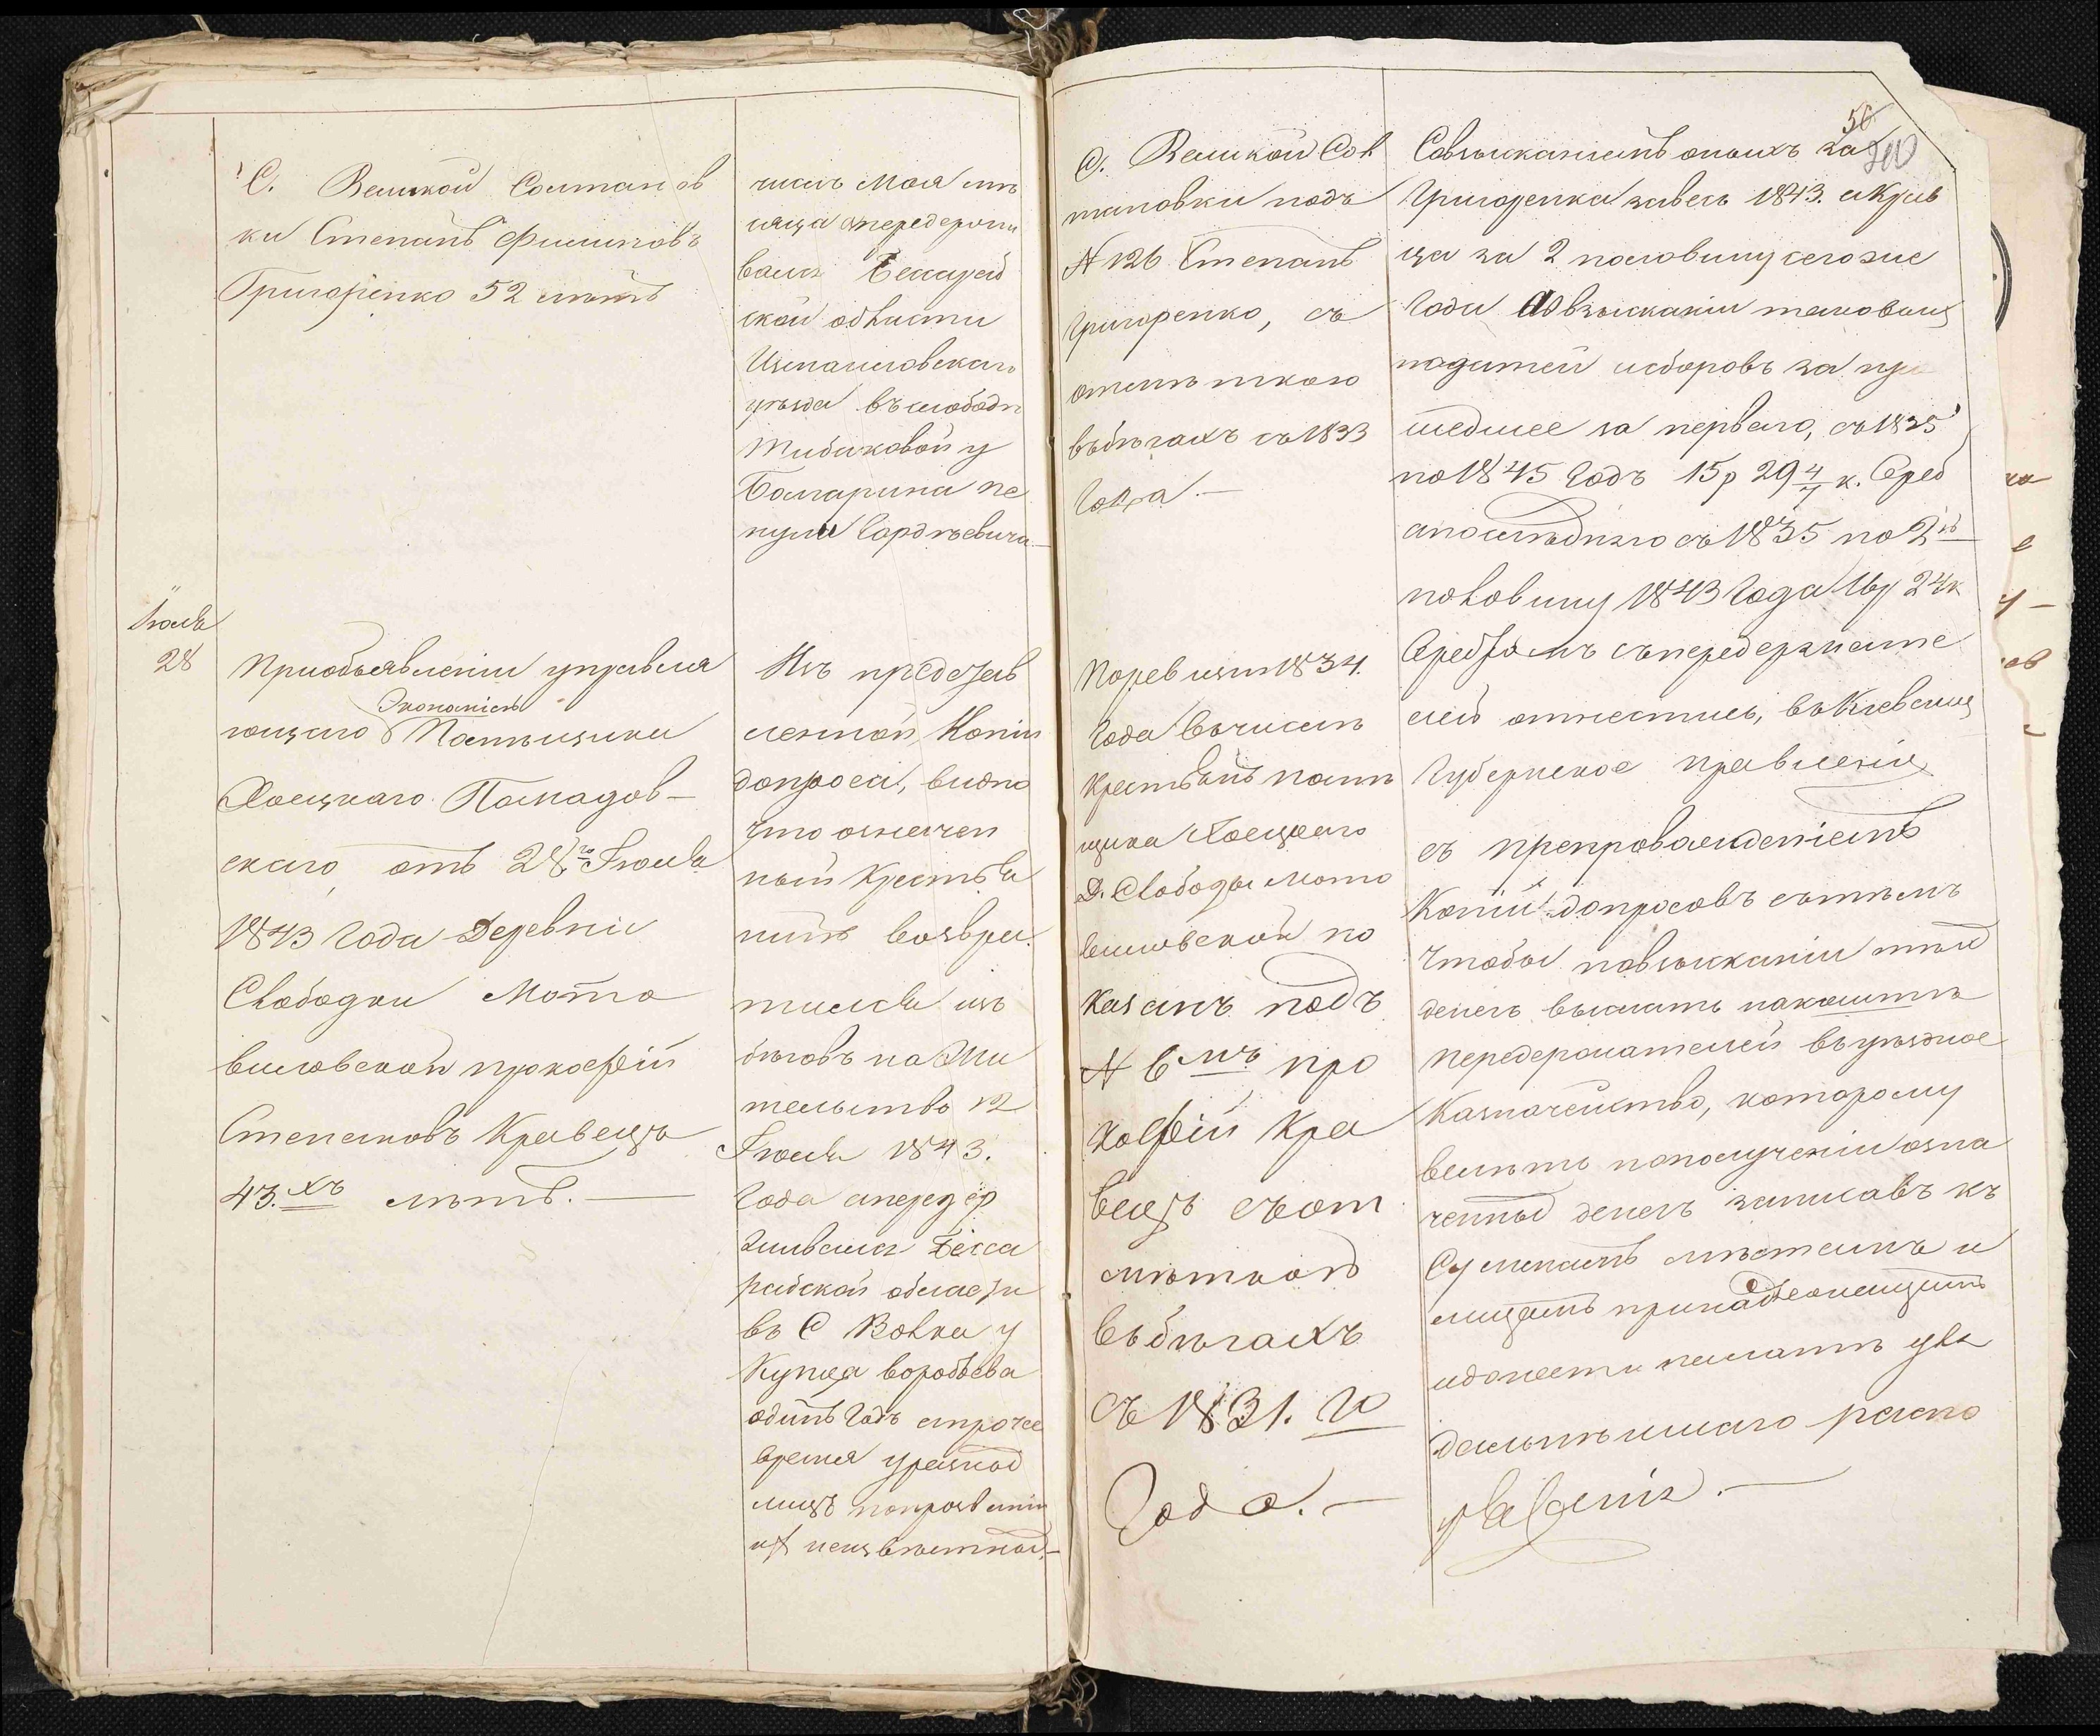 С. Великой Солтанов
ки Степанъ Филиповъ
Григоренко 52 лѣтъ
Іюля
28
Приобъявленіи управля
ющаго Экономіею Помѣщика
Хоецкаго
скаго отъ 28го Іюля
1843 Года Деревни
Слободки Мото
виловской прокофій
Степановъ Кравецъ
43.хъ лѣтъ. —
числѣ Мая мѣ
сяца апередержи
вался Бессараб
ской области
Измаиловскаго
уѣзда въслободѣ
у
Болгарина
Изъ представ
ленной Копіи
допроса, видно
что означен
ный Крестья
нинъ возвра
тился изъ
бѣговъ на Жи
тельство 12
Іюля 1843.
Года апередер
живался Бесса
рабской области
въ С Волка у
Купца воробъева
одинъ Годъ апрочее
время уразныхъ
лицъ попрозванію
ихъ неизвѣстныхъ. —
С. Великой Сол
тановки подъ
N 126 Степанъ
Григоренко, съ
отмѣткою
въбѣгахъ съ1833
Года. —
Поревизіи1834.
Года вчислѣ
Крестьянъ помѣ
щика Хоецкаго
Д. Слободы Мото
виловской по
казанъ подъ
N 6мъ про
кофій Кра
вецъ съот
мѣткою
въбѣгахъ
съ 1831. го
Года. —
50
200
Совзысканіемъ оныхъ за
Григоренка завесь 1843. аКрав
ца за 2 половину сегоже
Года Аовзысканіи таковыхъ
податей исборовъ за пре
шедшее за перваго, съ1835
по1845 Годъ 15р 29 4/7 к. Среб
апослѣдняго съ1835 по 2ю
половину 1843 Года 24к
Серебромъ съпередержате
лей отнестись, въКіевское
Губернское правленіе
съ препровожденіемъ
Копій допросовъ сътѣмъ
чтобы повзысканіи тѣхъ
денегъ выслать накошт
передержателей въуѣздное
Казначейство, которому
велѣть пополученіи озна
ченныхъ денегъ записавъ къ
Суммамъ мѣстамъ и
лицамъ принадлежащимъ
идонести палатѣ для
дальнѣйшаго распо
ряженія. —